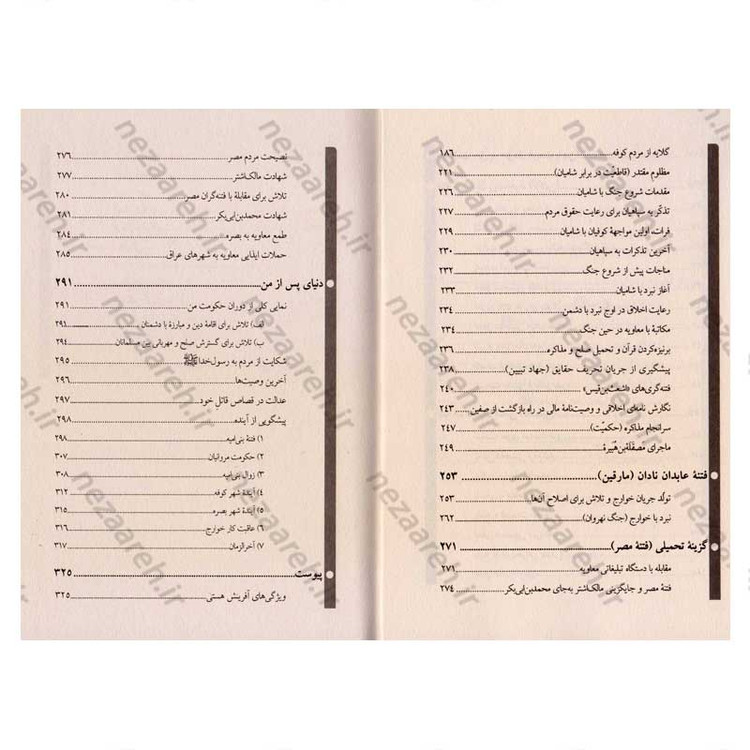 گلایه از مردم کوفه ۱۸۶
مظلوم مقتدر (قاطعیّت در برابر شامیان) ۲۲۱
مقدمات شروع جنگ با شامیان ۲۲۶
تذکّر به سپاهیان برای رعایت حقوق مردم ۲۲۷
فرات، اولین مواجههٔ کوفیان با شامیان ۲۲۹
آخرین تذکرات به سپاهیان ۲۳۰
مناجات پیش از شروع جنگ ۲۳۲
آغاز نبرد با شامیان ۲۳۳
رعایت اخلاق در اوج نبرد با دشمن ۲۳۴
مکاتبهٔ با معاویه در حین جنگ ۲۳۴
برنیزه‌کردن قرآن و تحمیل صلح و مذاکره ۲۳۶
پیشگیری از جریان تحریف حقایق (جهاد تبیین) ۲۳۸
فتنه‌گری‌های «اشعث‌بن‌قیس» ۲۴۰
نگارش نامه‌ای اخلاقی و وصیت‌نامهٔ مالی در راه بازگشت از صفین ۲۴۳
سرانجام مذاکره (حکمیّت) ۲۴۷
ماجرای مَصقَلَةبن‌هُبیرة ۲۴۹
فتنهٔ عابدان نادان (مارقین) ۲۵۳
تولّد جریان خوارج و تلاش برای اصلاح آن‌ها ۲۵۳
نبرد با خوارج (جنگ نهروان) ۲۶۲
گزینهٔ تحمیلی (فتنهٔ مصر) ۲۷۱
مقابله با دستگاه تبلیغاتی معاویه ۲۷۱
فتنهٔ مصر و جایگزینی مالک‌اشتر به‌جای محمدبن‌ابی‌بکر ۲۷۴
نصیحت مردم مصر ۲۷۶
شهادت مالک‌اشتر ۲۷۷
تلاش برای مقابلهٔ با فتنه‌گران مصر ۲۸۰
شهادت محمدبن‌ابی‌بکر ۲۸۱
طمع معاویه به بصره ۲۸۴
حملات ایذایی معاویه به شهرهای عراق ۲۸۵
دنیای پس از من ۲۹۱
نمایی کلی از دوران حکومت من ۲۹۱
الف) تلاش برای اقامهٔ دین و مبارزهٔ با دشمنان ۲۹۱
ب) تلاش برای گسترش صلح و مهربانی بین مسلمانان ۲۹۴
شکایت از مردم به رسول‌خدا ﷺ ۲۹۵
آخرین وصیت‌ها ۲۹۶
عدالت در قصاص قاتلِ خود ۲۹۷
پیشگویی از آینده ۲۹۸
۱) فتنهٔ بنی‌امیه ۲۹۸
۲) حکومت مروانیان ۳۰۷
۳) زوال بنی‌امیه ۳۰۸
۴) آیندهٔ شهر کوفه ۳۱۲
۵) آیندهٔ شهر بصره ۳۱۵
۶) عاقبت کار خوارج ۳۱۶
۷) آخرالزمان ۳۱۷
پیوست ۳۲۵
ویژگی‌های آفرینش هستی ۳۲۵
nezaareh.ir